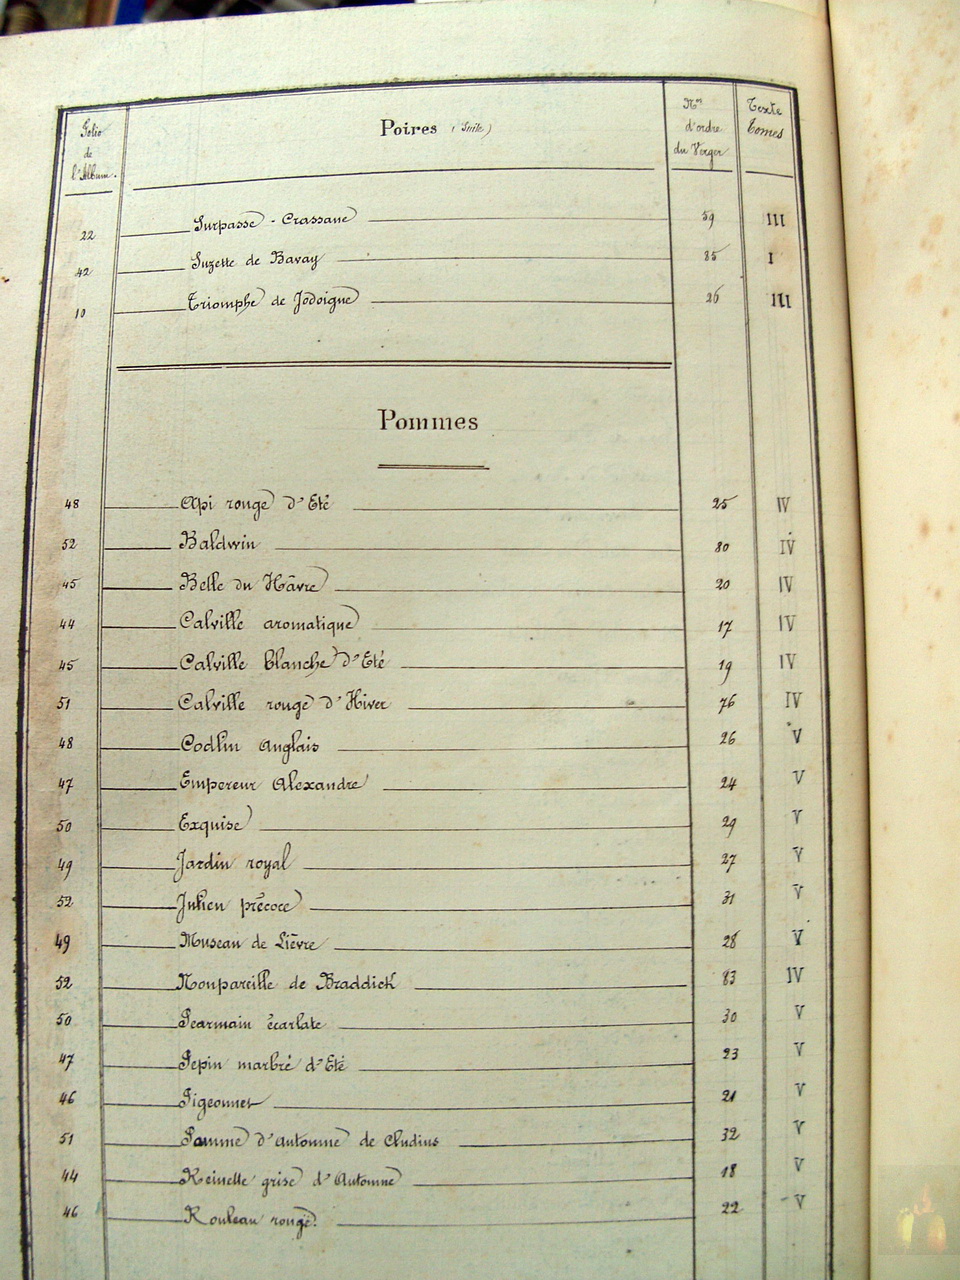 Folio de l'Album. Poires (Suite) Nos d'ordre du Verger Texte Tomes
22 Surpasse-Crassane 59 III
42 Suzette de Bavay 85 I
10 Triomphe de Jodoigne 26 III
Pommes
48 Api rouge d'Eté 25 IV
52 Baldwin 80 IV
45 Belle du Hâvre 20 IV
44 Calville aromatique 17 IV
45 Calville blanche d'Eté 19 IV
51 Calville rouge d'Hiver 76 IV
48 Codlin Anglais 26 V
47 Empereur Alexandre 24 V
50 Exquise 29 V
49 Jardin royal 27 V
52 Julien précoce 31 V
49 Museau de Lièvre 28 V
52 Nonpareille de Braddick 83 IV
50 Pearmain écarlate 30 V
47 Pepin marbré d'Eté 23 V
46 Pigeonnet 21 V
51 Pomme d'automne de Cludius 32 V
44 Reinette grise d'Automne 18 V
46 Rouleau rouge. 22 V